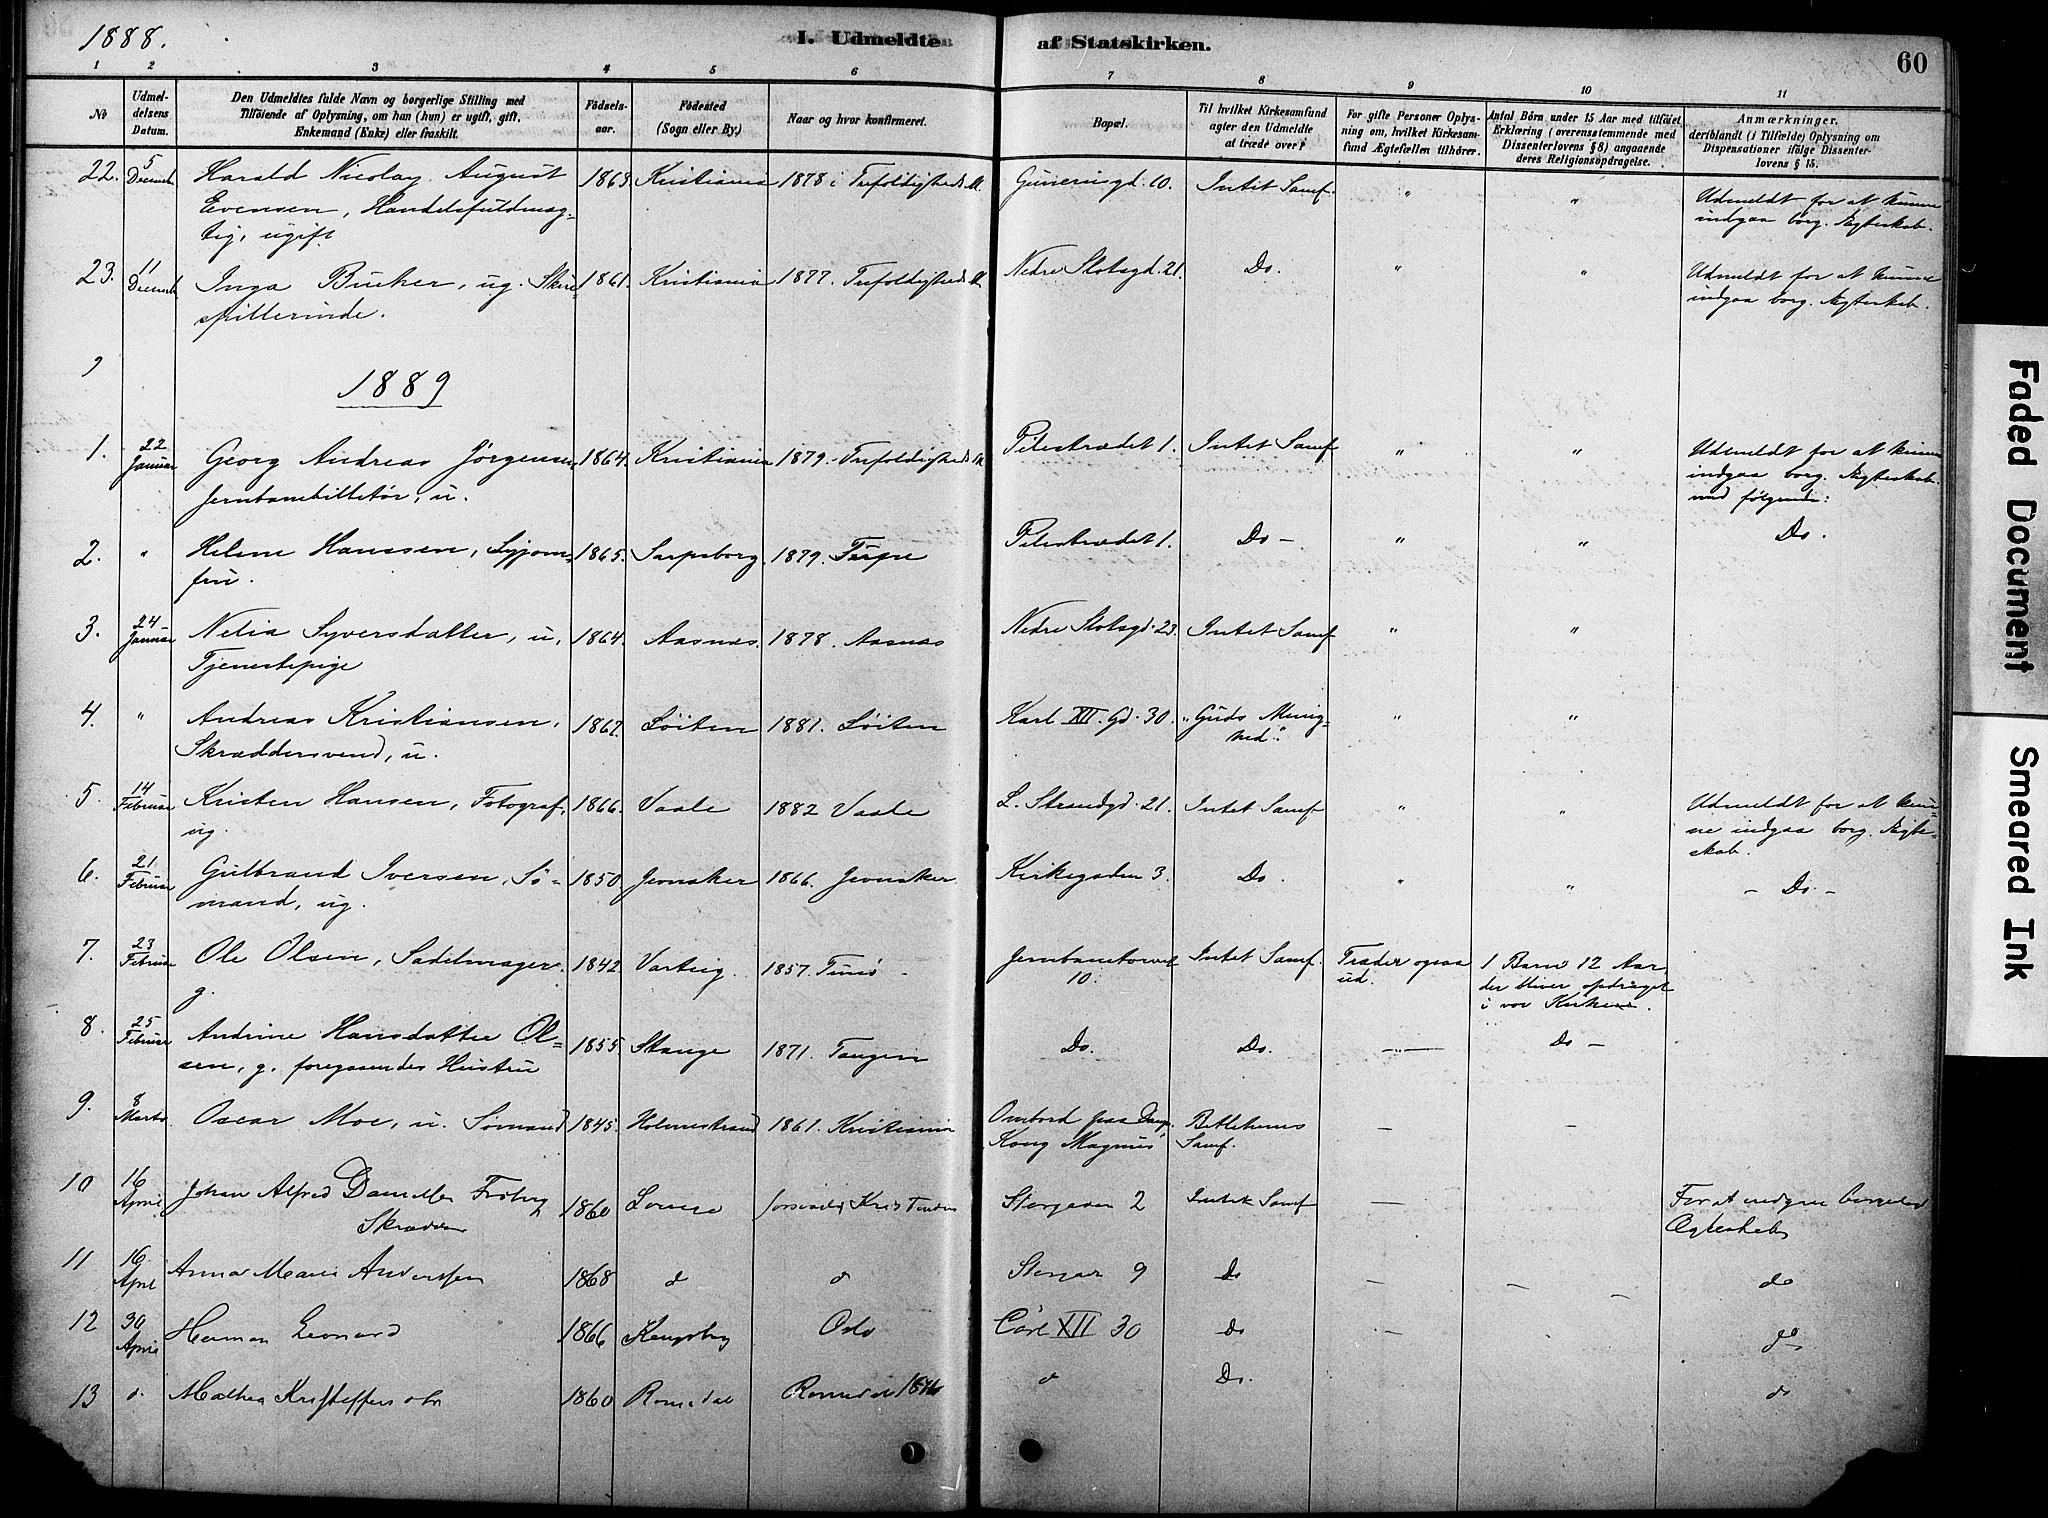 1888.
I. Udmeldte af Statskirken.
60
1 2 3 4 5 6 7 8 9 10 11
No
Udmel-
delsens
Datum.
Den Udmeldtes fulde Navn og borgerlige Stilling med
Tilføiende af Oplysning, om han (hun) er ugift, gift,
Enkemand (Enke) eller fraskilt.
Fødsels-
aar.
Fødested
(Sogn eller By.)
Naar og hvor konfirmeret.
Bopæl.
Til hvilket Kirkesamfund
agter den Udmeldte
at træde over?
For gifte Personer Oplys-
ning om, hvilket Kirkesam-
fund Ægtefællen tilhører.
Antal Börn under 15 Aar med tilföiet
Erklæring (overensstemmende med
Dissenterlovens § 8) angaaende
deres Religionsopdragelse.
Anmærkninger,
deriblandt (i Tilfælde) Oplysning om
Dispensationer ifölge Dissenter-
lovens § 15.
22. 5 Decemb. Harald Nicolay August 1863 Kristiania 1878 i Trefoldigheds K. Grünersgd. 10. Intet Samf. " " Udmeldt for at kunne
Evensen, Handelsfuldmæg- indgaa borg. Ægteskab.
tig, ugift
23. 11 Decemb. Inga Bucher, ug. Skue- 1861. Kristiania 1877. Trefoldigheds K Nedre Slotsgd. 21. Do. " " Udmeldt for at kunne
spillerinde. indgaa borg. Ægteskab.
1889
1. 22 Januar Georg Andreas Jørgensen 1864. Kristiania 1879. Trefoldigheds K Pilestrædet 1. Intet Samf " " Udmeldt for at kunne
Jernbanebilletør, u. indgaa borg. Ægteskab
med følgende:
2. " Helene Hanssen, Syjom- 1865. Sarpsborg. 1879. Tune Pilestrædet 1. Do - " " Do.
fru.
3. 24 Januar Netia Syversdatter, u, 1864. Aasnes. 1878. Aasnes Nedre Slotsgd. 23. Intet Samf " "
Tjenestepige
4. " Andreas Kristiansen, 1867. Løiten 1881. Løiten Karl XII. Gd. 30. "Guds Menig- " "
Skræddersvend, u. hed".
5. 14 Februar Kristen Hansen, Fotograf, 1866. Vaale 1882 Vaale L. Strandgd. 21. Intet Samf " " Udmeldt for at kun-
ug. ne indgaa borg. Ægte-
skab.
6. 21 Februar Gulbrand Iversen, Sø- 1850 Jevnaker 1866. Jevnaker. Kirkegaden 3. Do. " " - Do. -
mand, ug.
7. 23 Februar Ole Olsen, Sadelmager. 1842. Varteig. 1857. Tunø - Jernbanetorvet Intet Samf. Træder ogsaa 1 Barn 12 Aar,
g. 10. ud. der bliver opdraget
i vor Kirke.
8. 25 Februar Andrine Hansdatter Ol- 1855. Stange 1871. Tangen Do. Do. - " - Do -
sen, g. foregaaendes Hustru
9. 8 Marts Oscar Moe, u. Sømand 1845. Holmestrand 1861. Kristiania Ombord paa Damp. Betlehems - -
Kong Magnus Samf.
10 16 April Johan Alfred Danielsen Froberg 1860 Storgaden 2 Intet Samf - For at indgaa borgerlig
Skrædder Ægteskab
11 16 April Anna Marie Andersen 1868 d d Storgad 9 Do - - do
12 30 April Herman Leonard 1866 Kongsberg Oslo Carl XII 30 Do - - do
13 d. Mathea Kristoffersdtr 1860 Romedal Romedal 1876 d Do. do
Faded Document
Smeared Ink